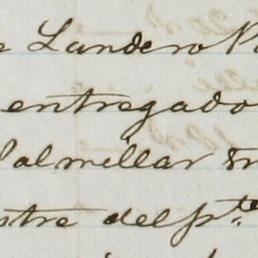 e Landero P
entregado
Palmillar en
stre del pte